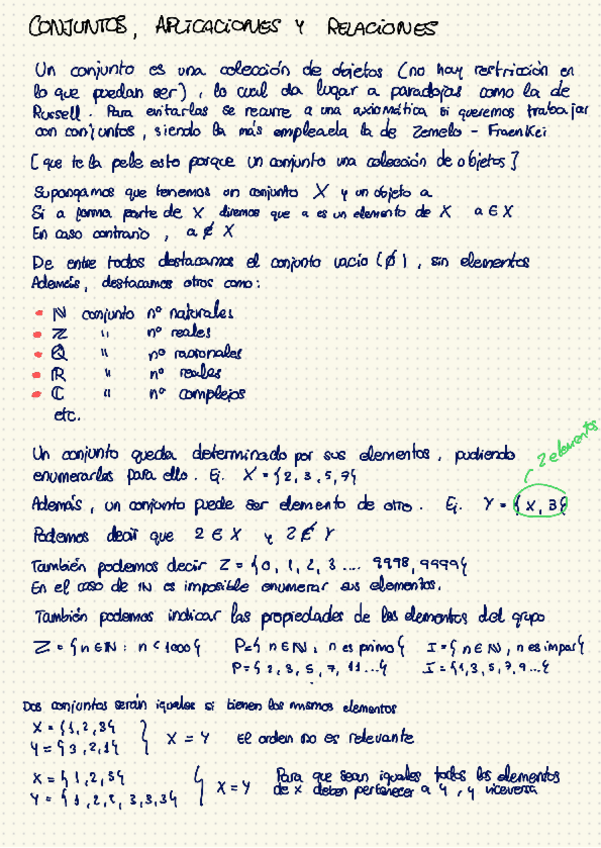 CONJUNTOS, APLICACIONES Y RELACIONES
Un conjunto es una colección de objetos (no hay restricción en
lo que puedan ser), lo cual da lugar a paradojas como la de
Russell. Para evitarlas se recurre a una axiomática si queremos trabajar
con conjuntos, siendo la más empleada la de Zemelo - Fraenkel
[que te la pele esto porque un conjunto una colección de objetos]
Supongamos que tenemos un conjunto X y un objeto a
Si a forma parte de X diremos que a es un elemento de X a ∈ X
En caso contrario, a ∉ X
De entre todos destacamos el conjunto vacío (∅), sin elementos
Además, destacamos otros como:
• ℕ conjunto nº naturales
• ℤ " nº reales
• ℚ " nº racionales
• ℝ " nº reales
• ℂ " nº complejos
etc.
2 elementos
Un conjunto queda determinado por sus elementos, pudiendo
enumerarlos para ello. Ej. X = {2, 3, 5, 7}
Además, un conjunto puede ser elemento de otro. Ej. Y = {X, 3}
Podemos decir que 2 ∈ X y 2 ∉ Y
También podemos decir Z = {0, 1, 2, 3 .... 9998, 9999}
En el caso de ℕ es imposible enumerar sus elementos.
También podemos indicar las propiedades de los elementos del grupo
Z = {n ∈ ℕ : n < 1000} P = {n ∈ ℕ, n es primo} I = {n ∈ ℕ, n es impar}
P = {2, 3, 5, 7, 11...} I = {1, 3, 5, 7, 9...}
Dos conjuntos serán iguales si tienen los mismos elementos
X = {1, 2, 3}
Y = {3, 2, 1} } X = Y El orden no es relevante
X = {1, 2, 3} Para que sean iguales todos los elementos
Y = {1, 2, 2, 3, 3, 3} } X = Y de x deben pertenecer a y, y viceversa